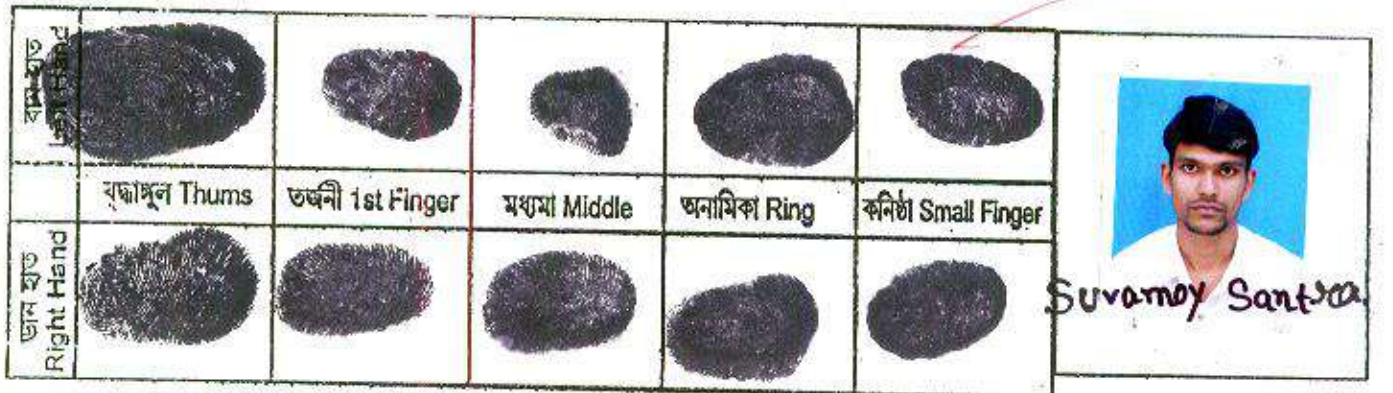 বাম হাত
Left Hand
বৃদ্ধাঙ্গুল Thums
তর্জনী 1st Finger
মধ্যমা Middle
অনামিকা Ring
কনিষ্ঠা Small Finger
ডান হাত
Right Hand
Suvamoy Santra